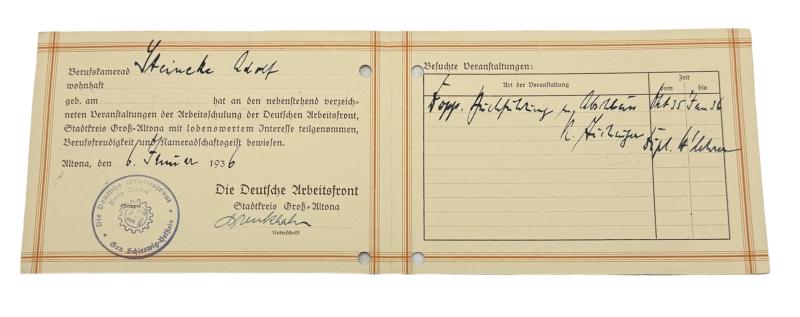 Berufskamerad Steincke Adolf
wohnhaft
geb. am hat an den nebenstehend verzeich-
neten Veranstaltungen der Arbeitsschulung der Deutschen Arbeitsfront,
Stadtkreis Groß-Altona mit lobenswertem Interesse teilgenommen,
Berufsfreudigkeit und Kameradschaftsgeist bewiesen.
Altona, den 6. Januar 1936
Die Deutsche Arbeitsfront
Stadtkreis Groß-Altona
Unterschrift
Die Deutsche Arbeitsfront
Kreis Altona
Gau Schleswig-Holstein
Besuchte Veranstaltungen:
Art der Veranstaltung
Zeit
vom bis
Dopp. Buchführung m. Abschluss Okt 35 Jan 36
Dipl. H'lehrer